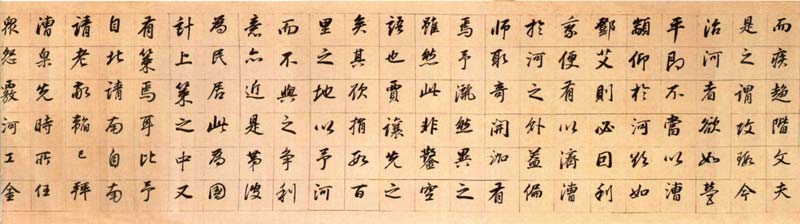 而疾趨階文夫
是之謂攻瑕今
治河者欲如營
平即不當以漕
額仰於河歟如
鄧艾則必因利
乘便有以濟漕
於河之外蓋偏
師取奇開泇有
焉予然異之
雖然此非鑿空
語也賈讓先之
矣其欲捐數百
里之地以予河
而不與之爭利
意亦近是第彼
為民居此為國
計上策之中又
有策焉耳比予
自北請南自南
請老已拜
漕臬先時所任
眾怨覈河工金